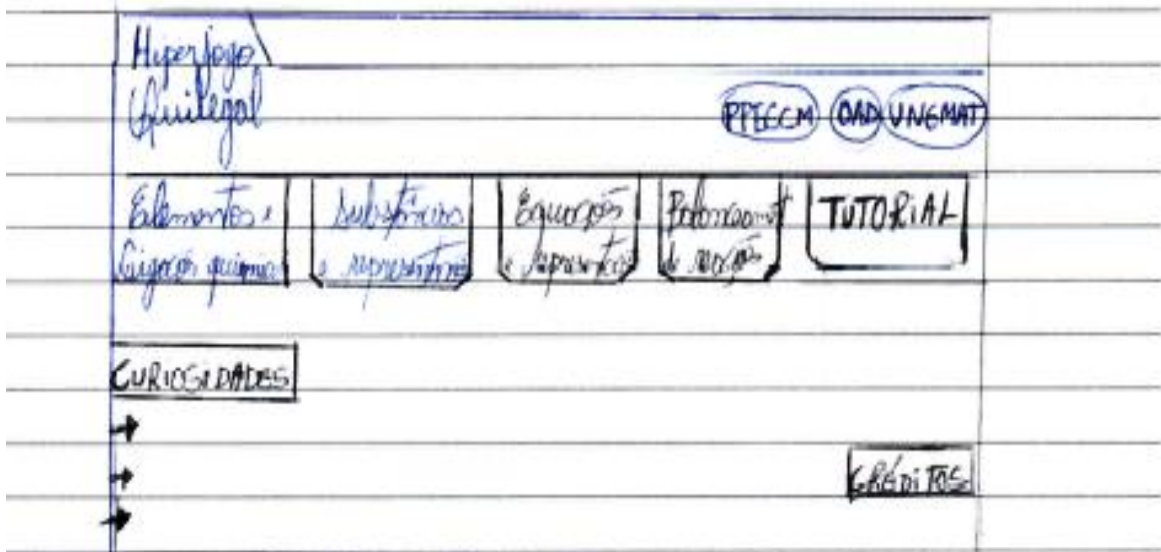 Hiperjogo
Quilegal
PPGECM OAD UNEMAT
Elementos e
Ligações químicas
Substâncias
e representações
Equações
e representações
Balanceament
de reações
TUTORIAL
CURIOSIDADES
CRÉDITOS